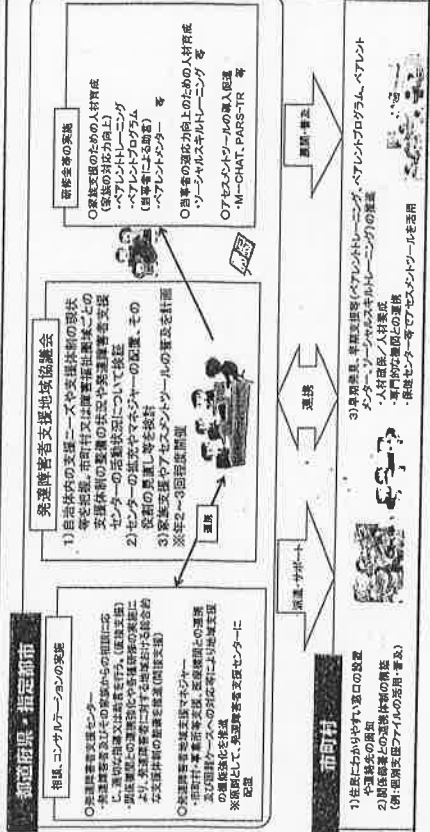 都道府県・指定都市
相談、コンサルテーションの実施
○発達障害者支援センター
・発達障害者及びその家族からの相談に応
じ、適切な指導又は助言を行う。(直接支援)
・関係機関との連携強化や各種研修の実施に
より、発達障害者に対する地域おける総合的
な支援体制の整備を推進(間接支援)
○発達障害者地域支援マネジャー
・市町村・事業所等支援、医療機関との連携
及び困難ケースへの対応等により地域支援
の機能強化を推進
※原則として、発達障害者支援センターに
配置
連携
発達障害者支援地域協議会
1)自治体内の支援ニーズや支援体制の現状
等を把握。市町村又は障害福祉圏域ごとの
支援体制の整備の状況や発達障害者支援
センターの活動状況について検証
2)センターの拡充やマネジャーの配置、その
役割の見直し等を検討
3)家族支援やアセスメントツールの普及を計画
※年2~3回程度開催
研修会等の実施
○家族支援のための人材育成
(家族の対応力向上)
・ペアレントトレーニング
・ペアレントプログラム
(当事者による助言)
・ペアレントメンター 等
○当事者の適応力向上のための人材育成
・ソーシャルスキルトレーニング 等
○アセスメントツールの導入促進
・M-CHAT, PARS-TR 等
派遣・サポート
連携
展開・普及
市町村
1)住民にわかりやすい窓口の設置
や連絡先の周知
2)関係部署との連携体制の構築
(例:個別支援ファイルの活用・普及)
3)早期発見、早期支援等(ペアレントトレーニング、ペアレントプログラム、ペアレント
メンター、ソーシャルスキルトレーニング)の推進
・人材確保/人材養成
・専門的な機関との連携
・保健センター等でアセスメントツールを活用